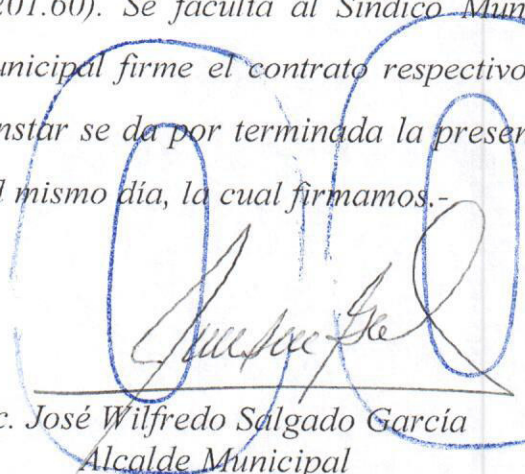 201.60). Se faculta al Síndico Mun
unicipal firme el contrato respectivo
nstar se da por terminada la presen
l mismo día, la cual firmamos.-
c. José Wilfredo Salgado García
Alcalde Municipal